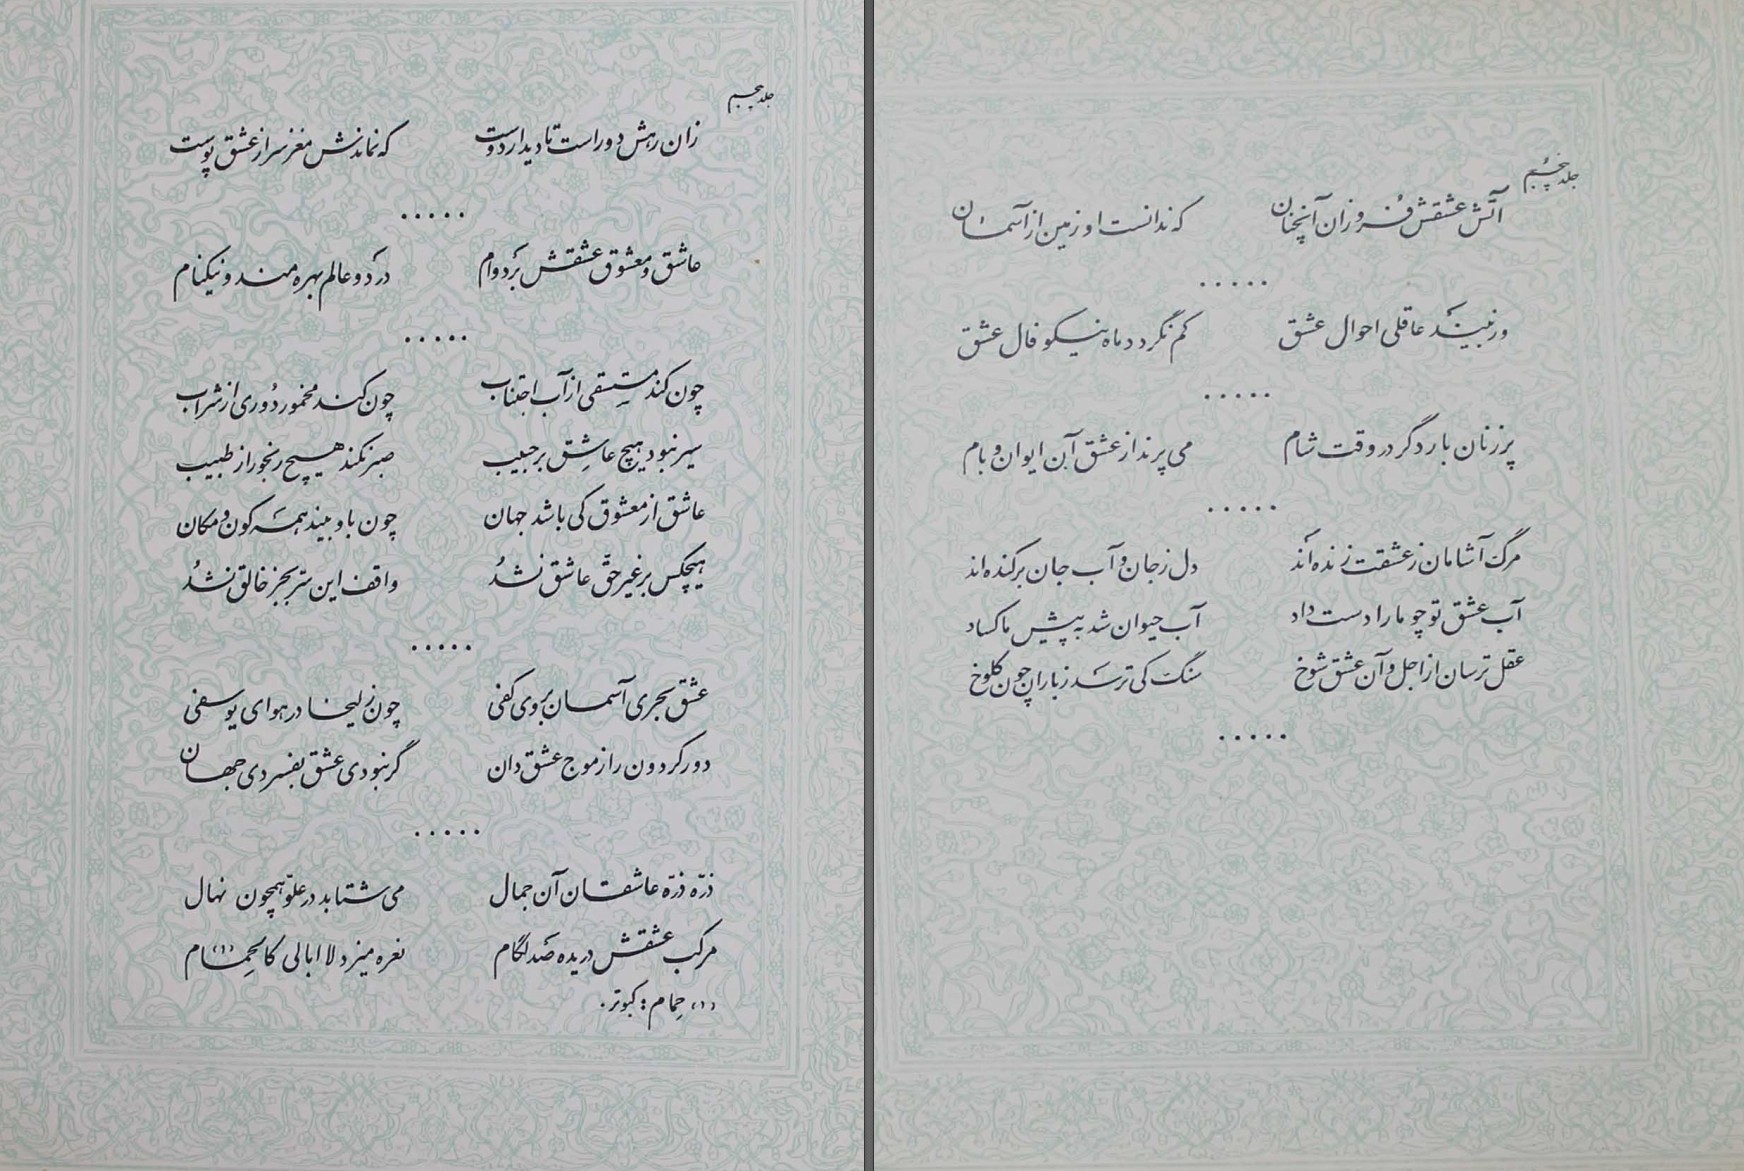 جلد پنجم
آتش عشقش فروزان آنچنان که ندانست او زمین از آسمان
.....
ور نبیند عاقلی احوال عشق کم نگردد ماه نیکو فال عشق
.....
پر زنان بار دگر در وقت شام می پرند از عشق آن ایوان و بام
.....
مرگ آشامان ز عشقت زنده اند دل ز جان و آب جان برکنده اند
آب عشق تو چو ما را دست داد آب حیوان شد به پیش ما کساد
عقل ترسان از اجل وآن عشق شوخ سنگ کی ترسد ز باران چون کلوخ
.....
جلد پنجم
زان رهش دور است تا دیدار دوست که نماندش مغز سر از عشق پوست
.....
عاشق و معشوق عشقش بر دوام در دو عالم بهره مند و نیکنام
.....
چون کند مستسقی از آب اجتناب چون کند مخمور دوری از شراب
سیر نبود هیچ عاشق بر حبیب صبر نکند هیچ رنجور از طبیب
عاشق از معشوق کی باشد جهان چون باو بیند همه کون و مکان
هیچکس بر غیر حقّ عاشق نشد واقف این سرّ بجز خالق نشد
.....
عشق بحری آسمان بروی کفی چون زلیخا در هوای یوسفی
دور گردون را ز موج عشق دان گر نبودی عشق بفسردی جهان
.....
ذرّه ذرّه عاشقان آن جمال می شتابد در علوّ همچون نهال
مرکب عشقش دریده صد لگام نعره میزد لا ابالی کالحِمام (۱)
(۱) حِمام : کبوتر .